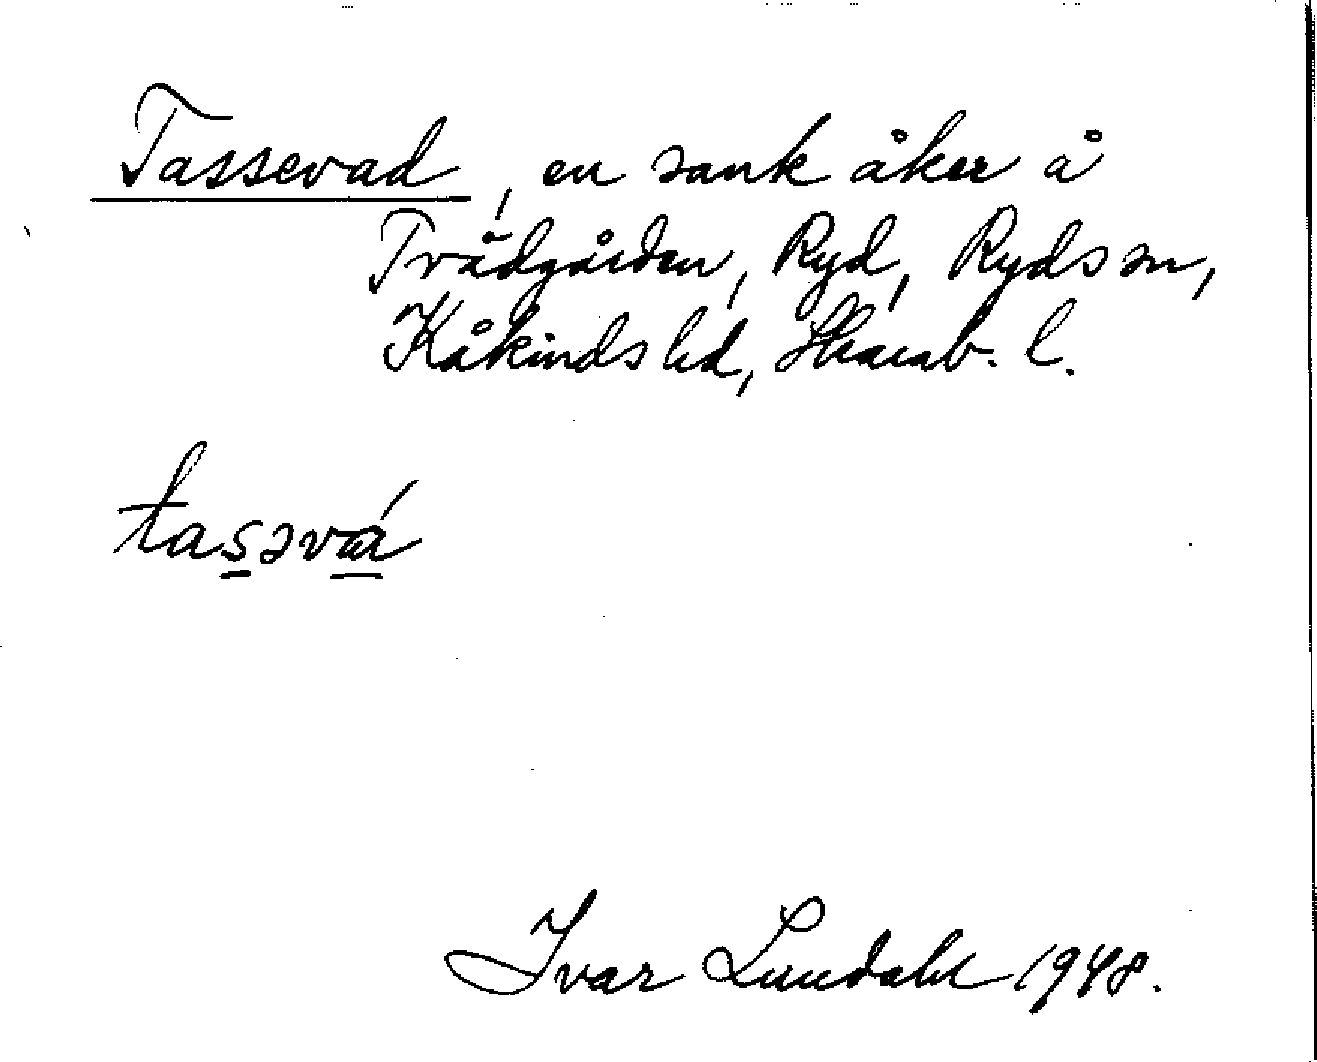 Tassevad, en sank åker å
Trädgården, Ryd, Ryds sn,
Kåkinds hd, Skarab. l.
tas̲əvá̲
Ivar Lundahl 1948.